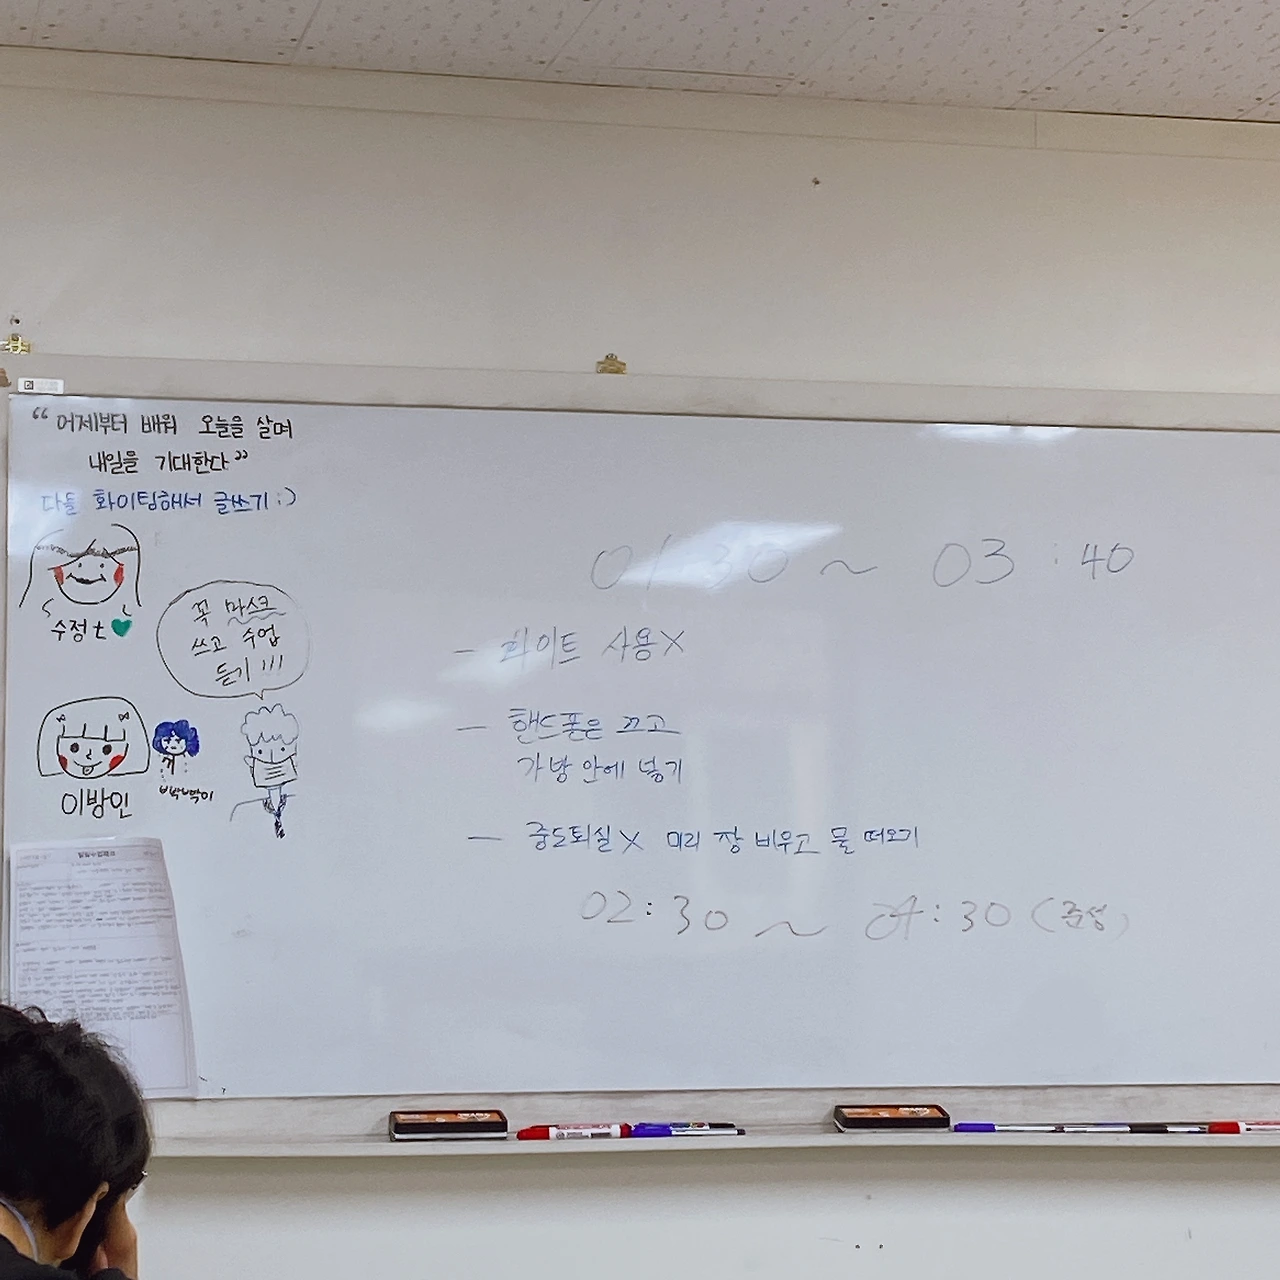 “어제부터 배워 오늘을 살며
내일을 기대한다”
다들 화이팅해서 글쓰기 :)
수정t
꼭 마스크
쓰고 수업
듣기!!!
이방인
빡빡이
01:30 ~ 03:40
- 화이트 사용X
- 핸드폰은 끄고
가방 안에 넣기
- 중도퇴실X 미리 장 비우고 물 떠오기
02:30 ~ 04:30 (준성)